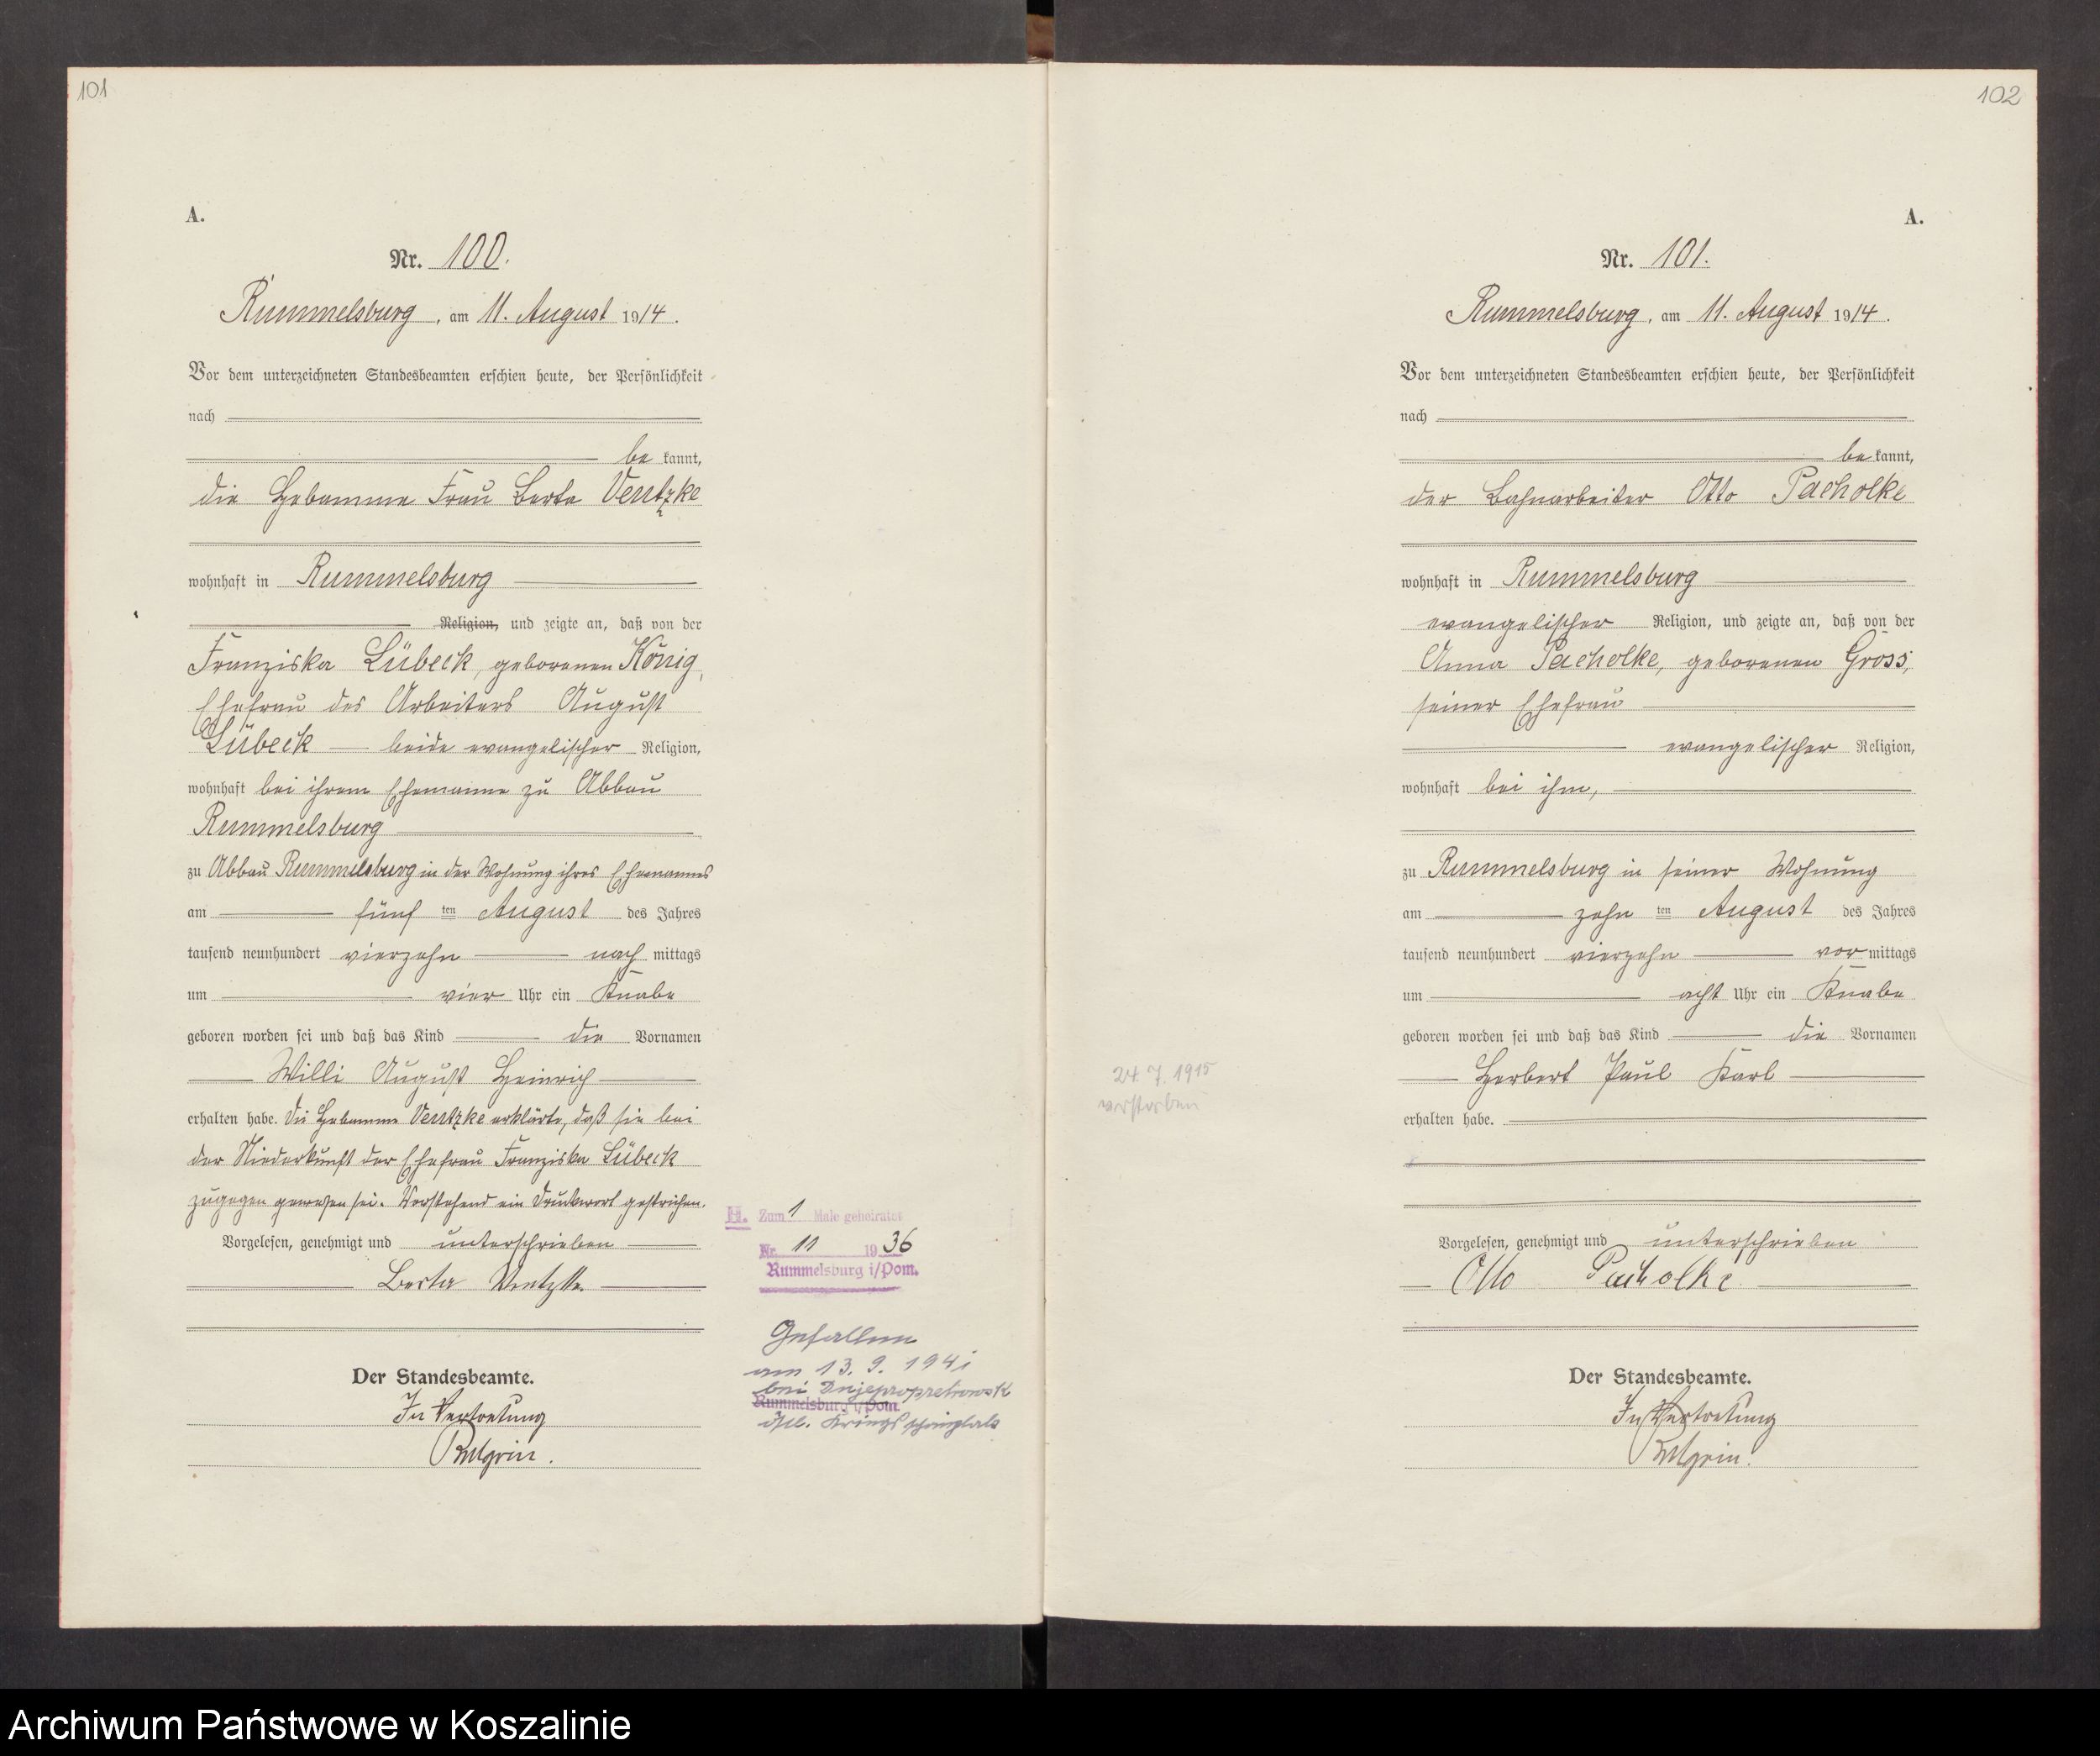 101
A.
Nr. 100.
Rummelsburg, am 11. August 1914.
Vor dem unterzeichneten Standesbeamten erschien heute, der Persönlichkeit
nach
bekannt,
die Hebamme Frau Berta Ventzke
wohnhaft in Rummelsburg
Religion, und zeigte an, daß von der
Franziska Lübeck, geborenen König,
Ehefrau des Arbeiters August
Lübeck beide evangelischer Religion,
wohnhaft bei ihrem Ehemanne zu Abbau
Rummelsburg
zu Abbau Rummelsburg in der Wohnung ihres Ehemannes
am fünften August des Jahres
tausend neunhundert vierzehn nachmittags
um vier Uhr ein Knabe
geboren worden sei und daß das Kind die Vornamen
Willi August Heinrich
erhalten habe. Die Hebamme Ventzke erklärte, daß sie bei
der Niederkunft der Ehefrau Franziska Lübeck
zugegen gewesen sei. Vorstehend ein Druckwort gestrichen.
Vorgelesen, genehmigt und unterschrieben
Berta Ventzke
Der Standesbeamte.
In Vertretung
H. Zum 1 Male geheiratet
Nr. 11 1936
Rummelsburg i/Pom.
Gefallen
am 13. 9. 1941
bei Dnjepropretrowsk
Rummelsburg i/Pom.
östl.
102
A.
Nr. 101.
Rummelsburg, am 11. August 1914.
Vor dem unterzeichneten Standesbeamten erschien heute, der Persönlichkeit
nach
bekannt,
der Bahnarbeiter Otto Pacholke
wohnhaft in Rummelsburg
evangelischer Religion, und zeigte an, daß von der
Anna Pacholke, geborenen Gross,
seiner Ehefrau
evangelischer Religion,
wohnhaft bei ihm,
zu Rummelsburg in seiner Wohnung
am zehnten August des Jahres
tausend neunhundert vierzehn vormittags
um acht Uhr ein Knabe
geboren worden sei und daß das Kind die Vornamen
Herbert Paul Karl
erhalten habe.
Vorgelesen, genehmigt und unterschrieben
Otto Pacholke
Der Standesbeamte.
In Vertretung
24. 7. 1915
verstorben
Archiwum Państwowe w Koszalinie